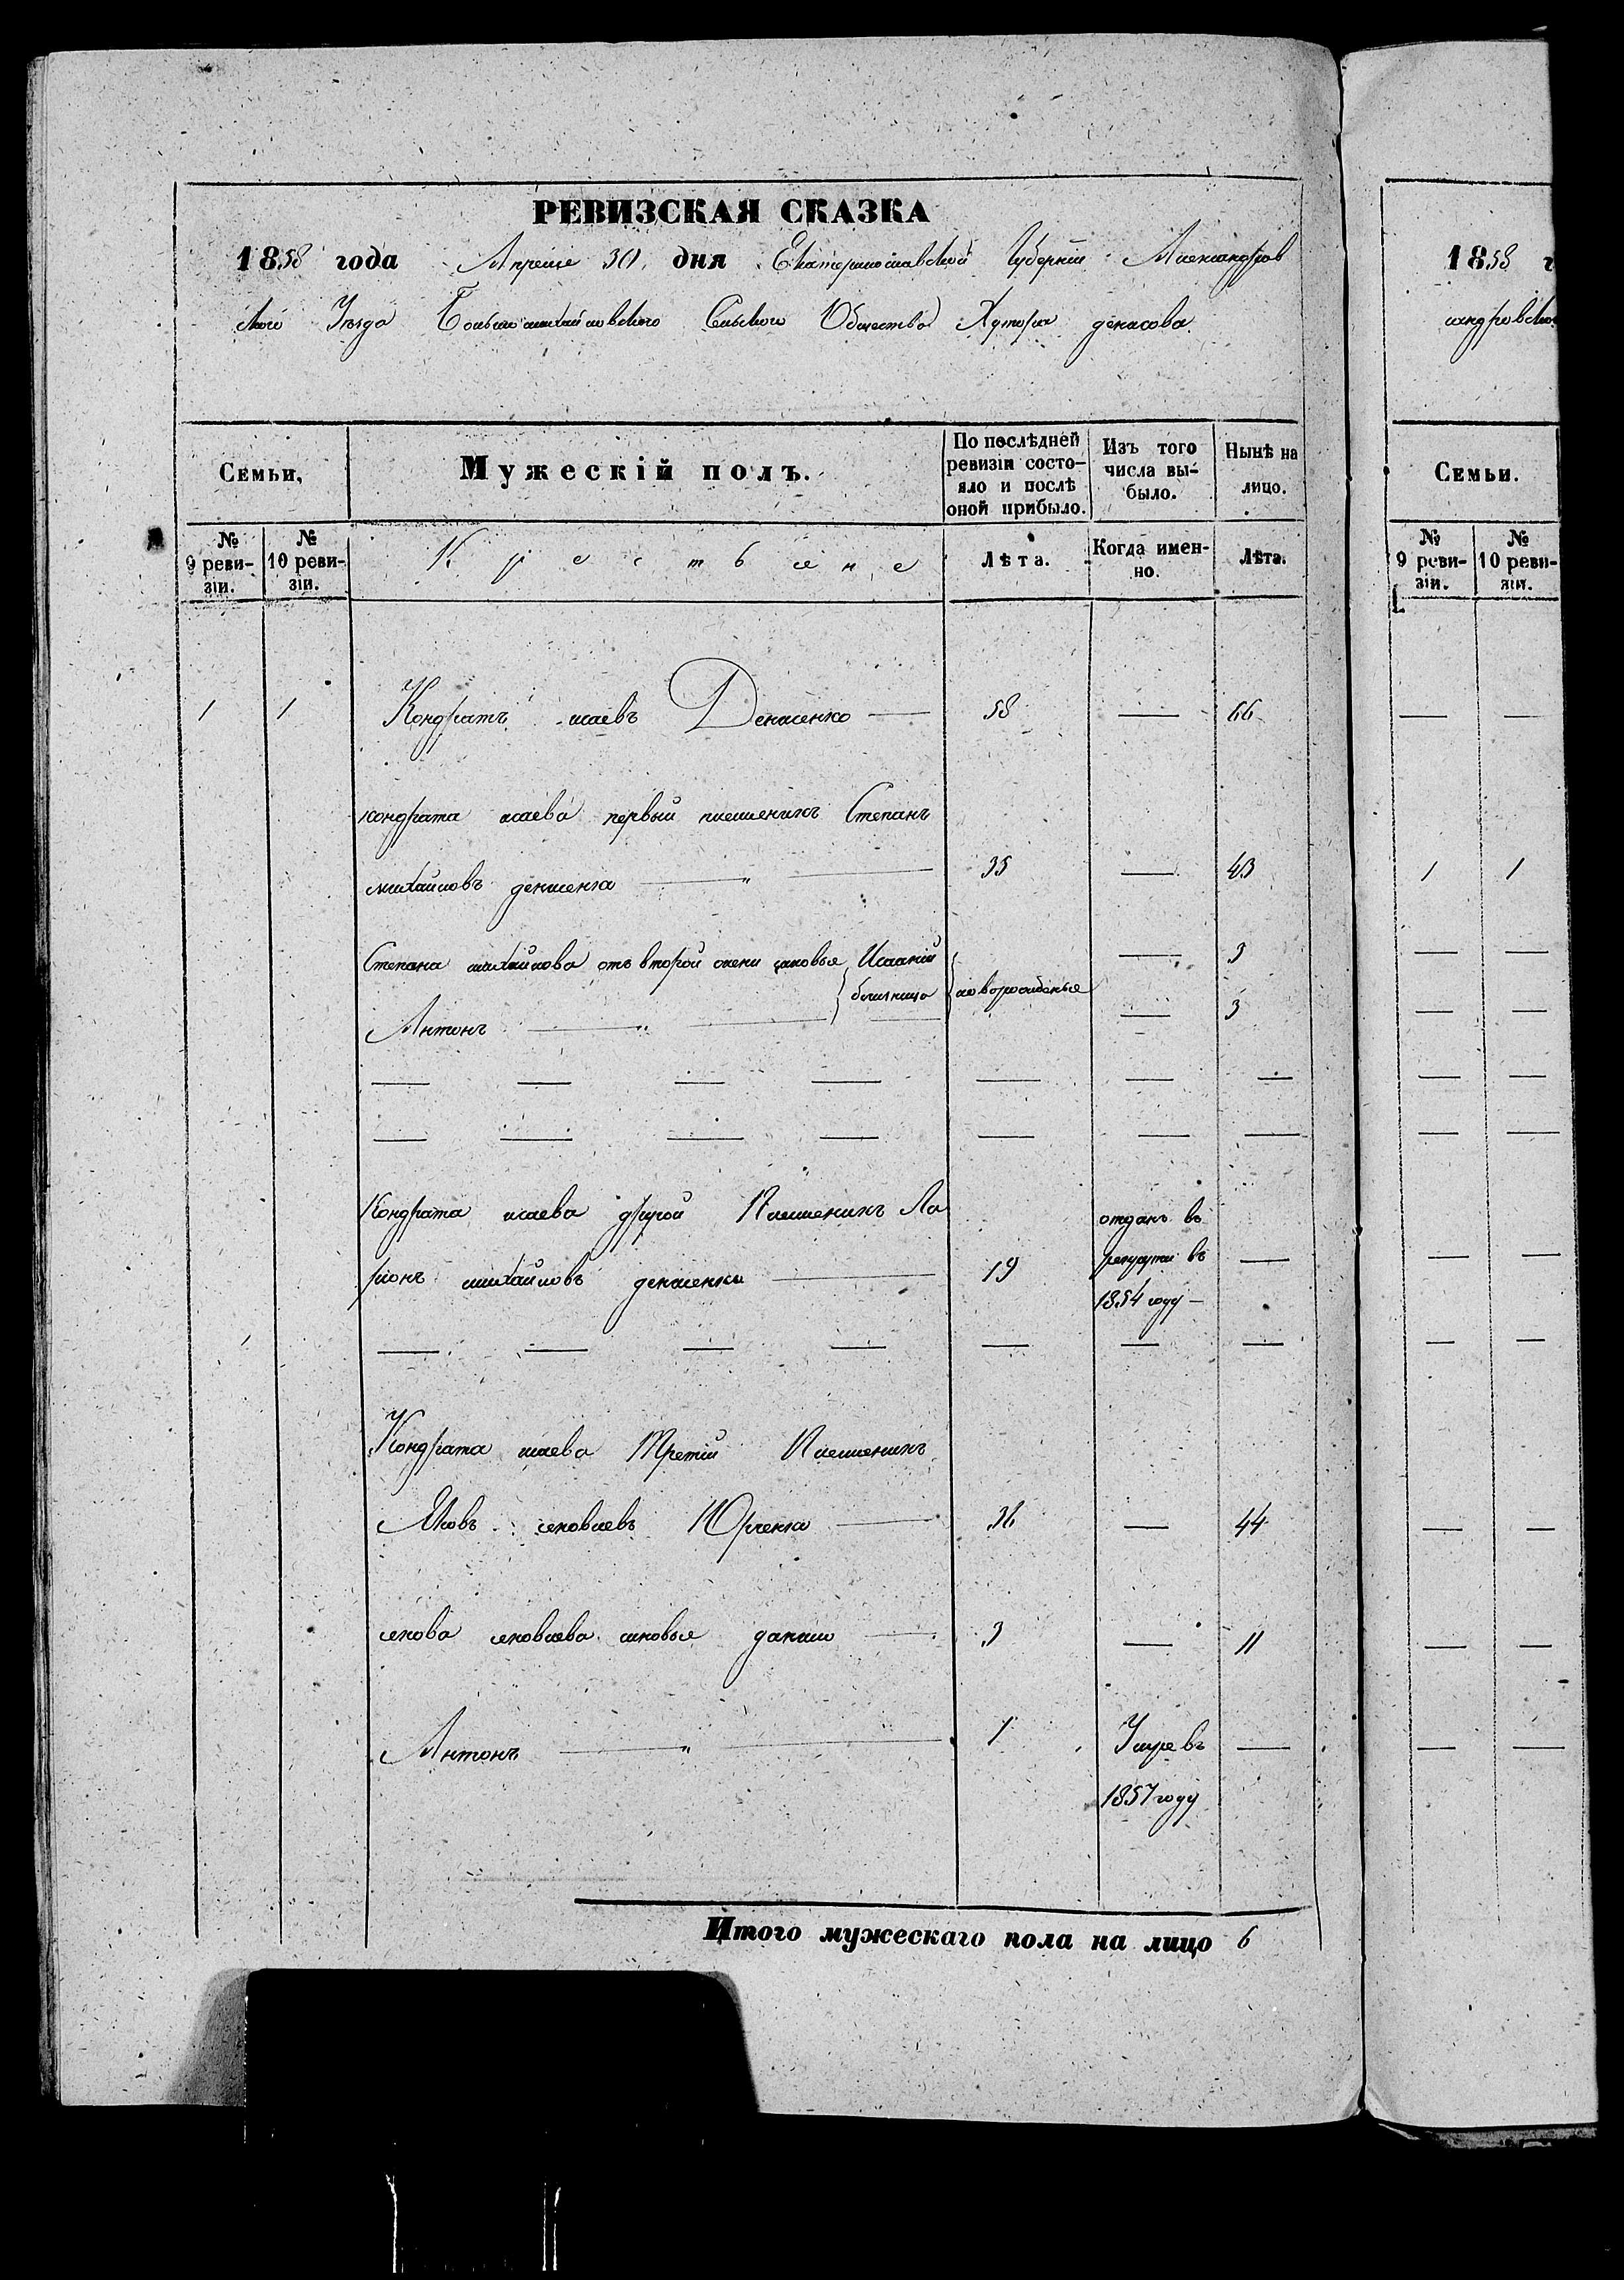 РЕВИЗСКАЯ СКАЗКА
1858 года Апреля 30 дня Екатеринославской Губерніи Александров
ской Уезда Большемихайловского Сельского Общества Хутора денисова
Семьи,
Мужескій полъ.
По послѣдней ревизіи состо-
яло и послѣ
оной прибыло.
Изъ того
числа вы-
было.
Нынѣ на
лицо.
№
9 реви-
зіи.
№
10 реви-
зіи.
Крестьяне
Лѣта.
Когда имен-
но.
Лѣта.
1 1 Кондратъ исаевъ Денисенко — 58 — 66
кондрата исаева первый племеникъ Степанъ
михайловъ денисенко — " — 35 — 43
Степана михайлова отъ второй жени сыновья Исакій — 3
близнецы новорожденые
Антонъ — " — — 3
— — — — — — —
— — — — — — —
Кондрата исаева другой Племеникъ Ла
ріонъ михайловъ денисенко — 19 —
отданъ въ
рекруты въ
1854 году —
— — — — — — —
Кондрата исаева Третій Племеникъ
Яковъ яковлевъ Юрченко — 36 — 44
якова яковлева сыновья данило — 3 — 11
Антонъ — " — 1 Умре въ —
1857 году
Итого мужескаго пола на лицо 6
1858 г
сандровско
Семьи.
№
9 реви-
зіи.
№
10 реви-
зіи.
— —
1 1
— —
— —
— —
— —
— —
— —
— —
— —
— —